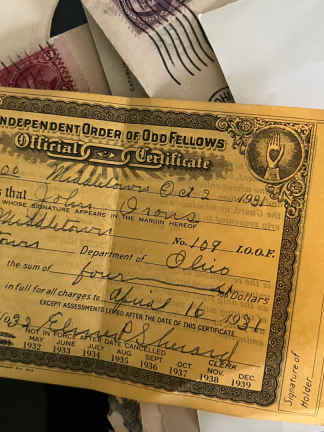 INDEPENDENT ORDER OF ODD FELLOWS
Official Certificate
Middletown Oct 2 1931
s that John Irons
WHOSE SIGNATURE APPEARS IN THE MARGIN HEREOF
Middletown No. 109 I.O.O.F.
town Department of Ohio
the sum of four Dollars
in full for all charges to April 16 1931
EXCEPT ASSESSMENTS LEVIED AFTER THE DATE OF THIS CERTIFICATE
1932
CLERK
NOT IN FORCE AFTER DATE CANCELLED
MAY JUNE JULY AUG. SEPT OCT NOV. DEC.
1932 1933 1934 1935 1936 1937 1938 1939
Signature of
Holder